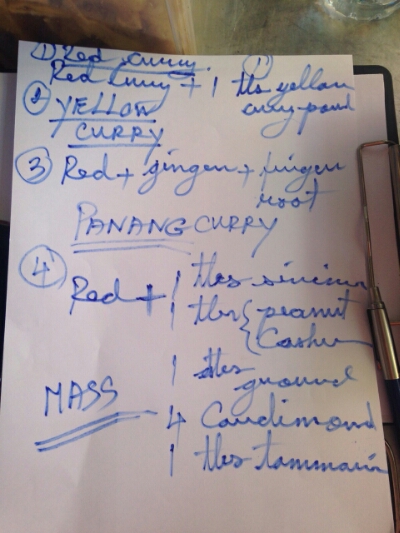 1) Red curry.
Red curry + 1 tbs yellow
curry-powd
2 YELLOW
CURRY
3 Red + ginger + finger
root
PANANG CURRY
4
Red + 1 tbs
1 tbs { peanut
Cashew
1 tbs
ground
MASS
4 Cardimond
1 tbs tammarin